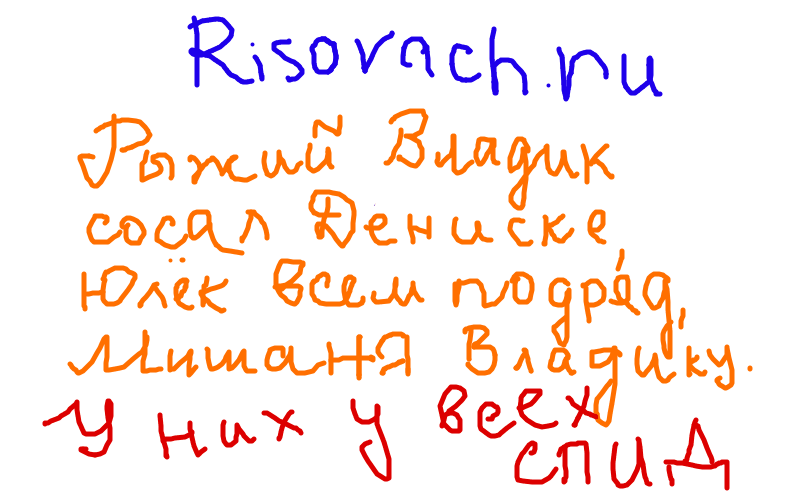 Risovach.ru
Рыжий Владик
сосал Дениске,
Юлёк всем подряд,
Мишаня Владику.
У них у всех
СПИД